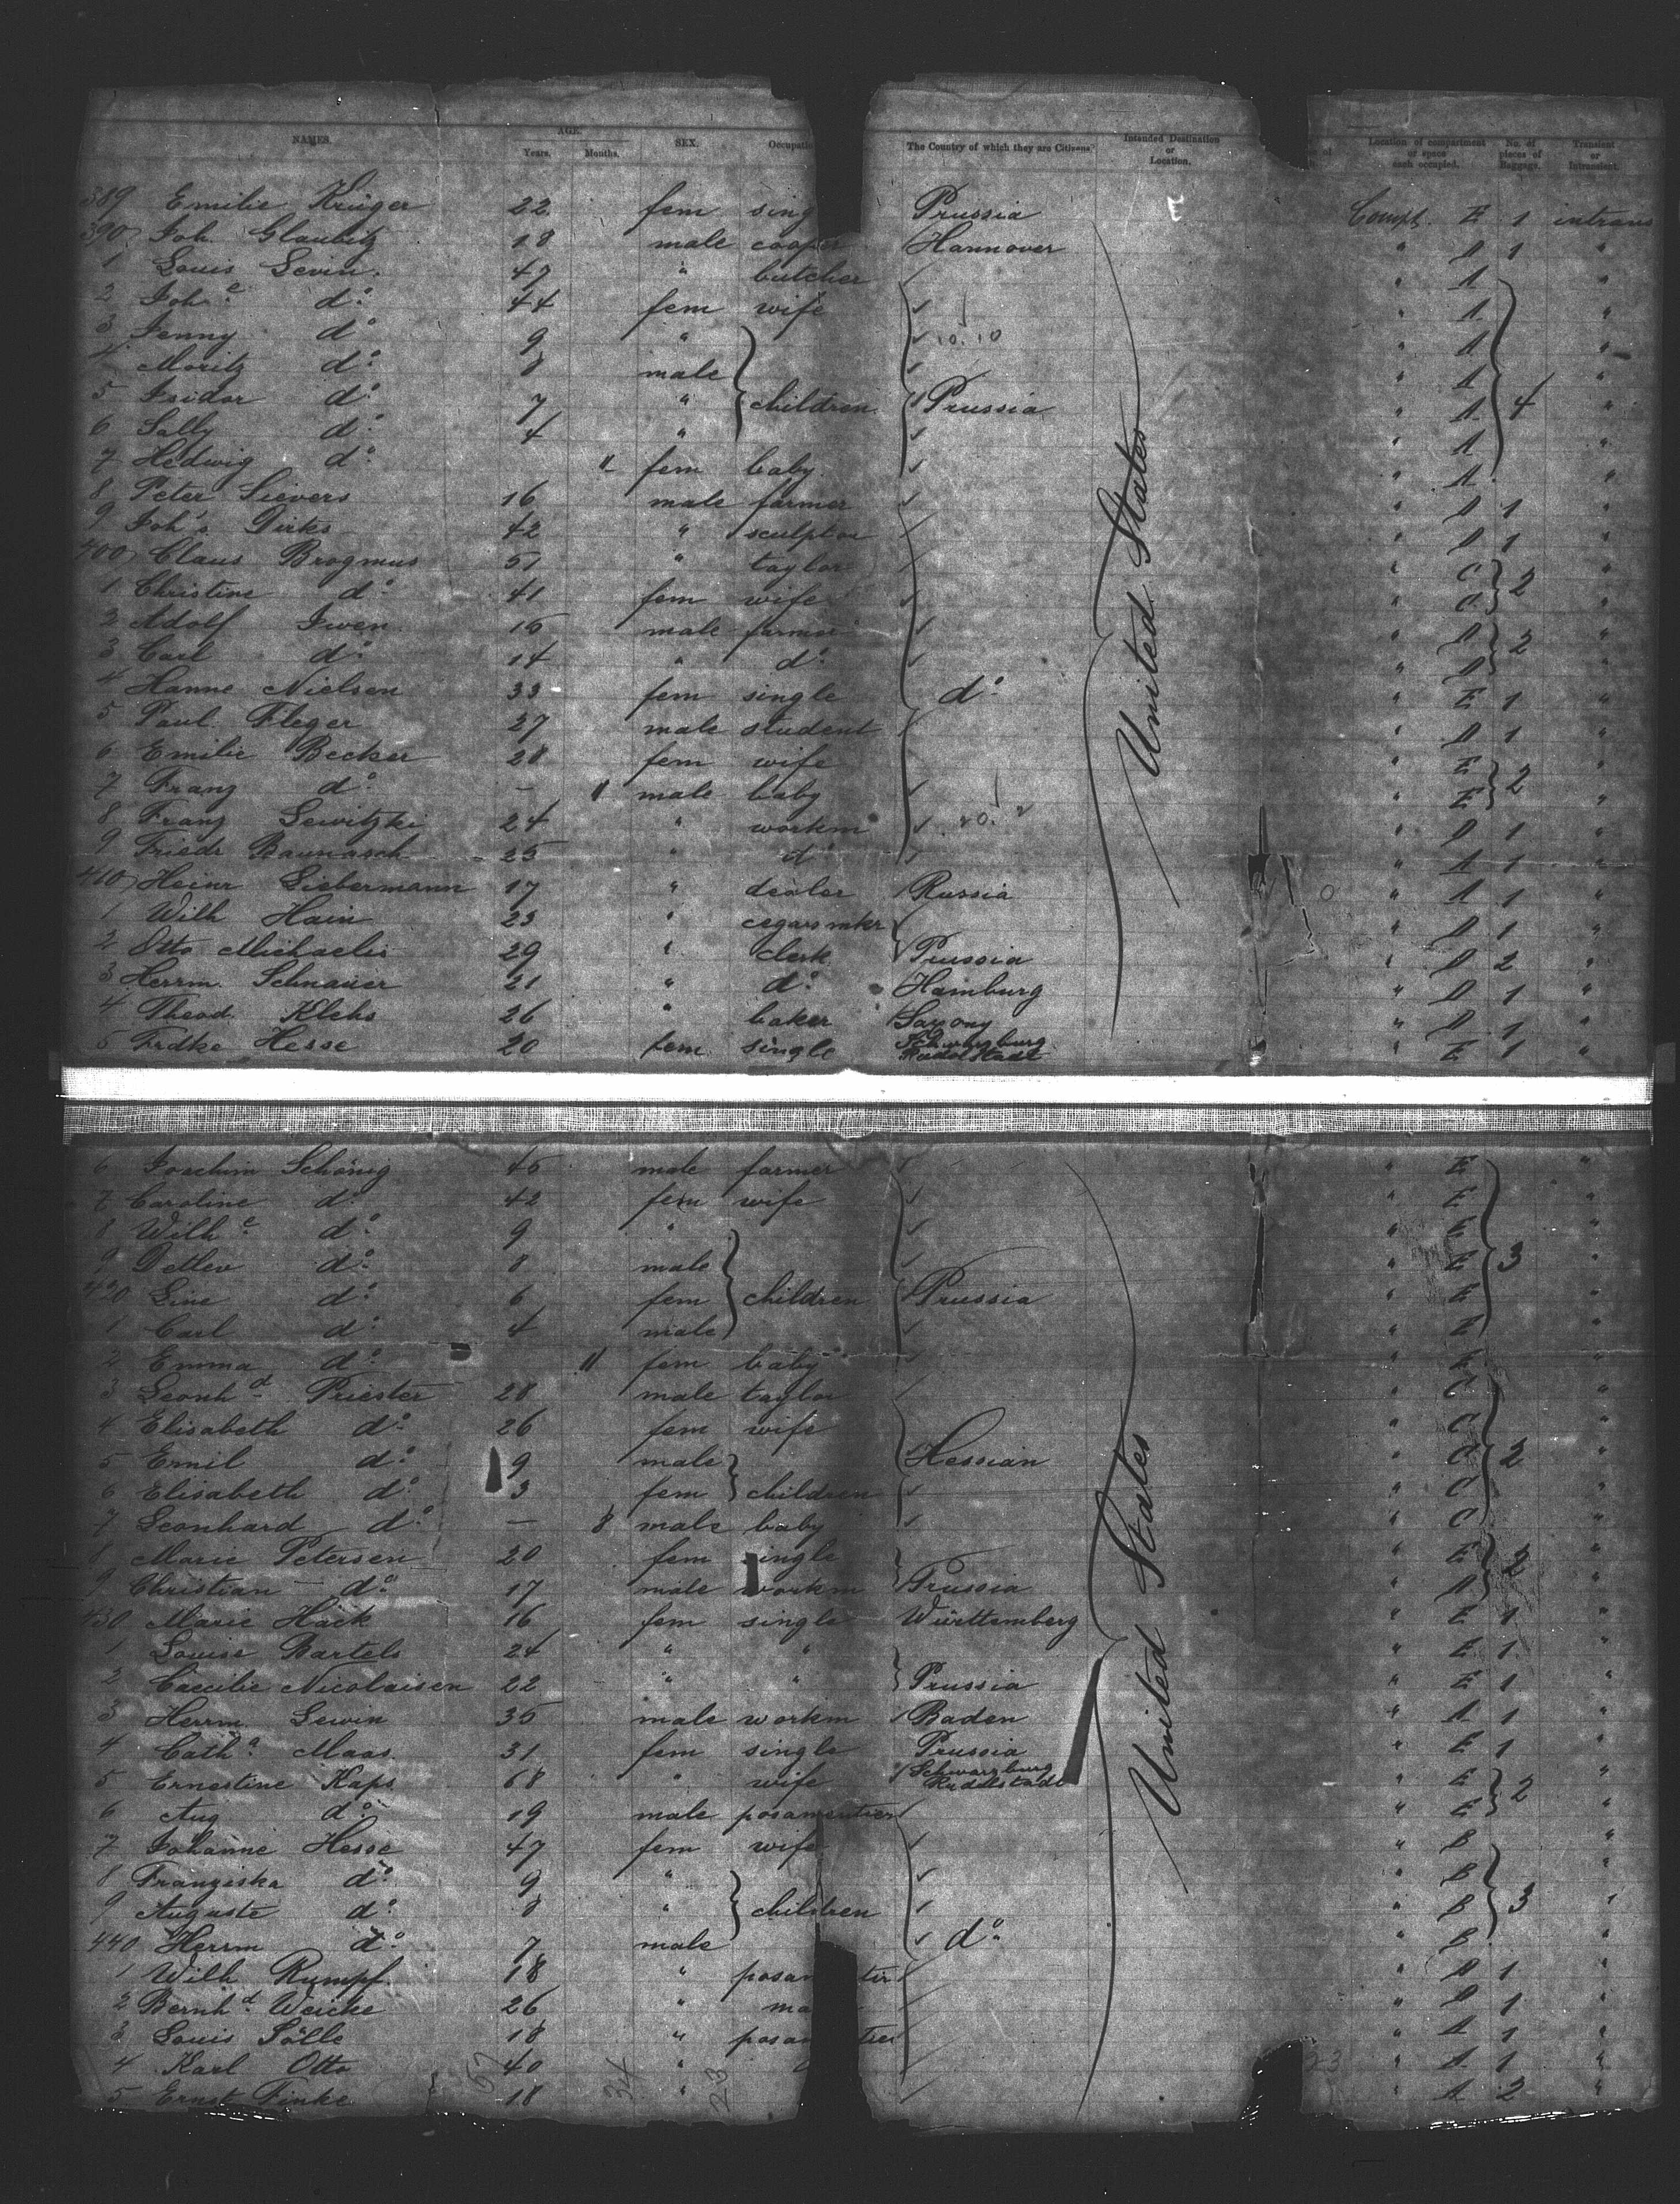 NAMES. AGE. Years. Months. SEX. Occupati The Country of which they are Citizens. Intended Destination or Location. of Location of compartment or space each occupied. No. of pieces of Baggage. Transient or Intransient.
389 Emilie Krüger 22 fem sing Prussia Compt. E 1 intrans
390) Joh. Glaubitz 18 male cooper Hannover " D 1 "
1 Louis Levin 47 " butcher " A "
2 Joh.e do 44 fem wife " A "
3 Jenny do 9 " " A "
4 Moritz do 8 male " A "
5 Isidor do 7 " children Prussia " A 4 "
6 Sally do 4 " " A "
7 Hedwig do 11 fem baby " A "
8 Peter Sievers 16 male farmer " D 1 "
9 Joh's Dirks 42 " sculptor " D 1 "
400) Claus Brogmus 51 " taylor " C 2 "
1 Christine do 41 fem wife " C "
2 Adolf Iwen 16 male farmer " D 2 "
3 Carl do 14 " do " D "
4 Hanne Nielsen 33 fem single do " E 1 "
5 Paul Fleger 27 male student " D 1 "
6 Emilie Becker 28 fem wife " E 2 "
7 Franz do — 11 male baby " E "
8 Franz Lewitzki 24 " workm " D 1 "
9 Friedr Baunasch 25 " do " A 1 "
410) Heinr Liebermann 17 " dealer Russia " A 1 "
1 Wilh Hain 23 " cegarsmkr " D 1 "
2 Otto Michaelis 29 " clerk Prussia " D 2 "
3 Herrm. Schnauer 21 " do Hamburg " D 1 "
4 Theod. Klehs 26 " baker Saxony " D 1 "
5 Frdke Hesse 20 fem single Schwarzburg Rudolstadt " E 1 "
United States
6 Joachim Schönig 45 male farmer " E "
7 Caroline do 42 fem wife " E "
8 Wilh.e do 9 " " E "
9 Detlev do 8 male " E 3 "
420 Line do 6 fem children Prussia " E "
1 Carl do 4 male " E "
2 Emma do 11 fem baby " E "
3 Leonhd Priester 28 male taylor " C "
4 Elisabeth do 26 fem wife " C "
5 Emil do 9 male Hessian " C 2 "
6 Elisabeth do 3 fem children " C "
7 Leonhard do — 8 male baby " C "
8 Marie Petersen 20 fem single " E 2 "
9 Christian do 17 male workm Prussia " A "
430 Marie Häck 16 fem single Württemberg " E 1 "
1 Louise Bartels 24 " " " E 1 "
2 Caecilie Nicolaisen 22 " " Prussia " E 1 "
3 Herrm Lewin 35 male workm Baden " A 1 "
4 Cath.a Maas 31 fem single Prussia " E 1 "
5 Ernestine Kaps 68 " wife Schwarzburg Rudolstadt " E 2 "
6 Aug do 19 male posamentier " E "
7 Johanne Hesse 47 fem wife " B "
8 Franziska do 9 " " B "
9 Auguste do 8 " children " B 3 "
440 Herrm do 7 male do " B "
1 Wilh Rumpf 18 " posam tir " D 1 "
2 Bernhd Weicke 26 " ma " D 1 "
3 Louis Sölle 18 " posam tier " A 1 "
4 Karl Otto 40 " " A 1 "
5 Ernst Finke 18 " " A 2 "
United States